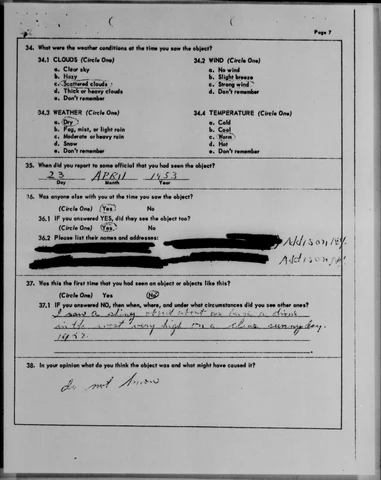 Page 7
34. What were the weather conditions at the time you saw the object?
34.1 CLOUDS (Circle One) 34.2 WIND (Circle One)
a. Clear sky a. No wind
b. Hazy b. Slight breeze
c. Scattered clouds c. Strong wind
d. Thick or heavy clouds d. Don't remember
e. Don't remember
34.3 WEATHER (Circle One) 34.4 TEMPERATURE (Circle One)
a. Dry a. Cold
b. Fog, mist, or light rain b. Cool
c. Moderate or heavy rain c. Warm
d. Snow d. Hot
e. Don't remember e. Don't remember
35. When did you report to some official that you had seen the object?
23 APRIL 1953
Day Month Year
36. Was anyone else with you at the time you saw the object?
(Circle One) Yes No
36.1 IF you answered YES, did they see the object too?
(Circle One) Yes No
36.2 Please list their names and addresses:
Addison
Addison
37. Was this the first time that you had seen an object or objects like this?
(Circle One) Yes No
37.1 IF you answered NO, then when, where, and under what circumstances did you see other ones?
I saw a shiny object about as large a dime
in the west very high on a clear sunny day.
1952.
38. In your opinion what do you think the object was and what might have caused it?
do not know